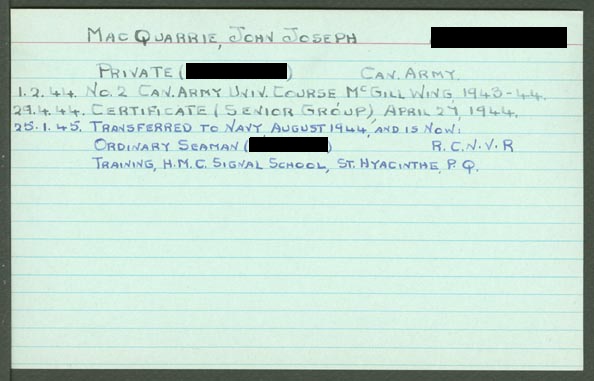 MacQuarrie, John Joseph
Private ( ) Can. Army.
1.2.44. No. 2 Can. Army Univ. Course McGill Wing 1943-44.
29.4.44. Certificate (Senior Group), April 27, 1944.
25.1.45. Transferred to Navy August 1944, and is now:
Ordinary Seaman ( ) R.C.N.V.R
Training, H.M.C. Signal School, St. Hyacinthe, P.Q.